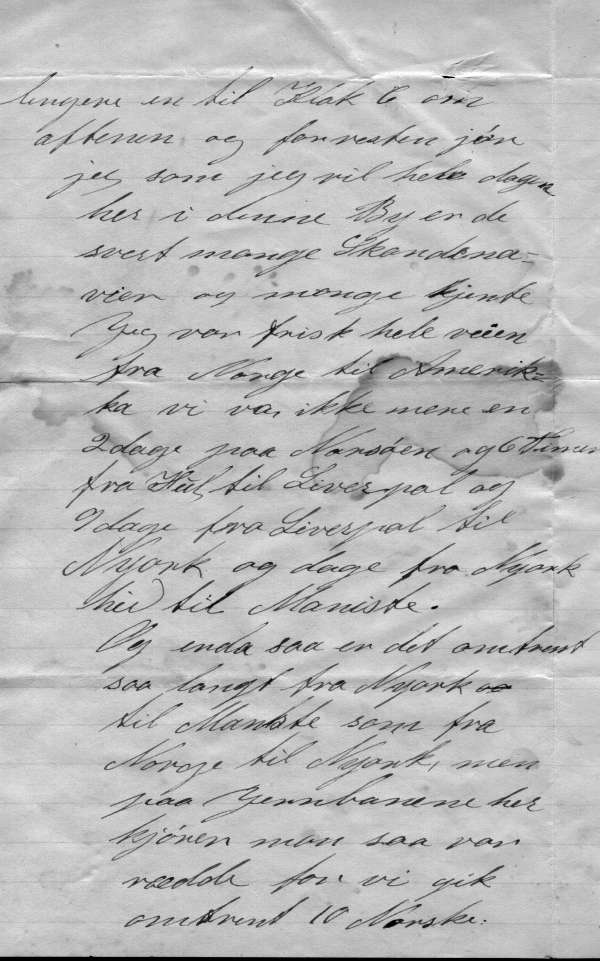 lengere en til Klok 6 om
aftenen og forresten jør
jeg som jeg vil hele dagen
her i denne By er de
svert mange Skandena-
vier og mange kjente
Jeg var frisk hele veien
fra Norge til Amerik-
ka vi var ikke mere en
2 dage paa Norsøen og 6 Timer
fra Hul til Liverpol og
9 dage fra Liverpol til
Nyork og dage fra Nyork
hid til Maniste.
Og enda saa er det omtrent
saa langt fra Nyork
til Maniste som fra
Norge til Nyork, men
paa Jernbanene her
kjören man saa var
rædde for vi gik
omtrent 10 Norske.